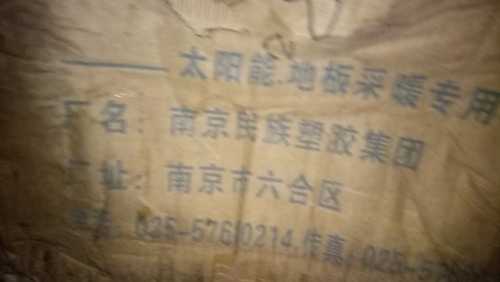 ——太阳能.地板采暖专用
厂名：南京民族塑胶集团
厂址：南京市六合区
025-57610214.传真:025-5